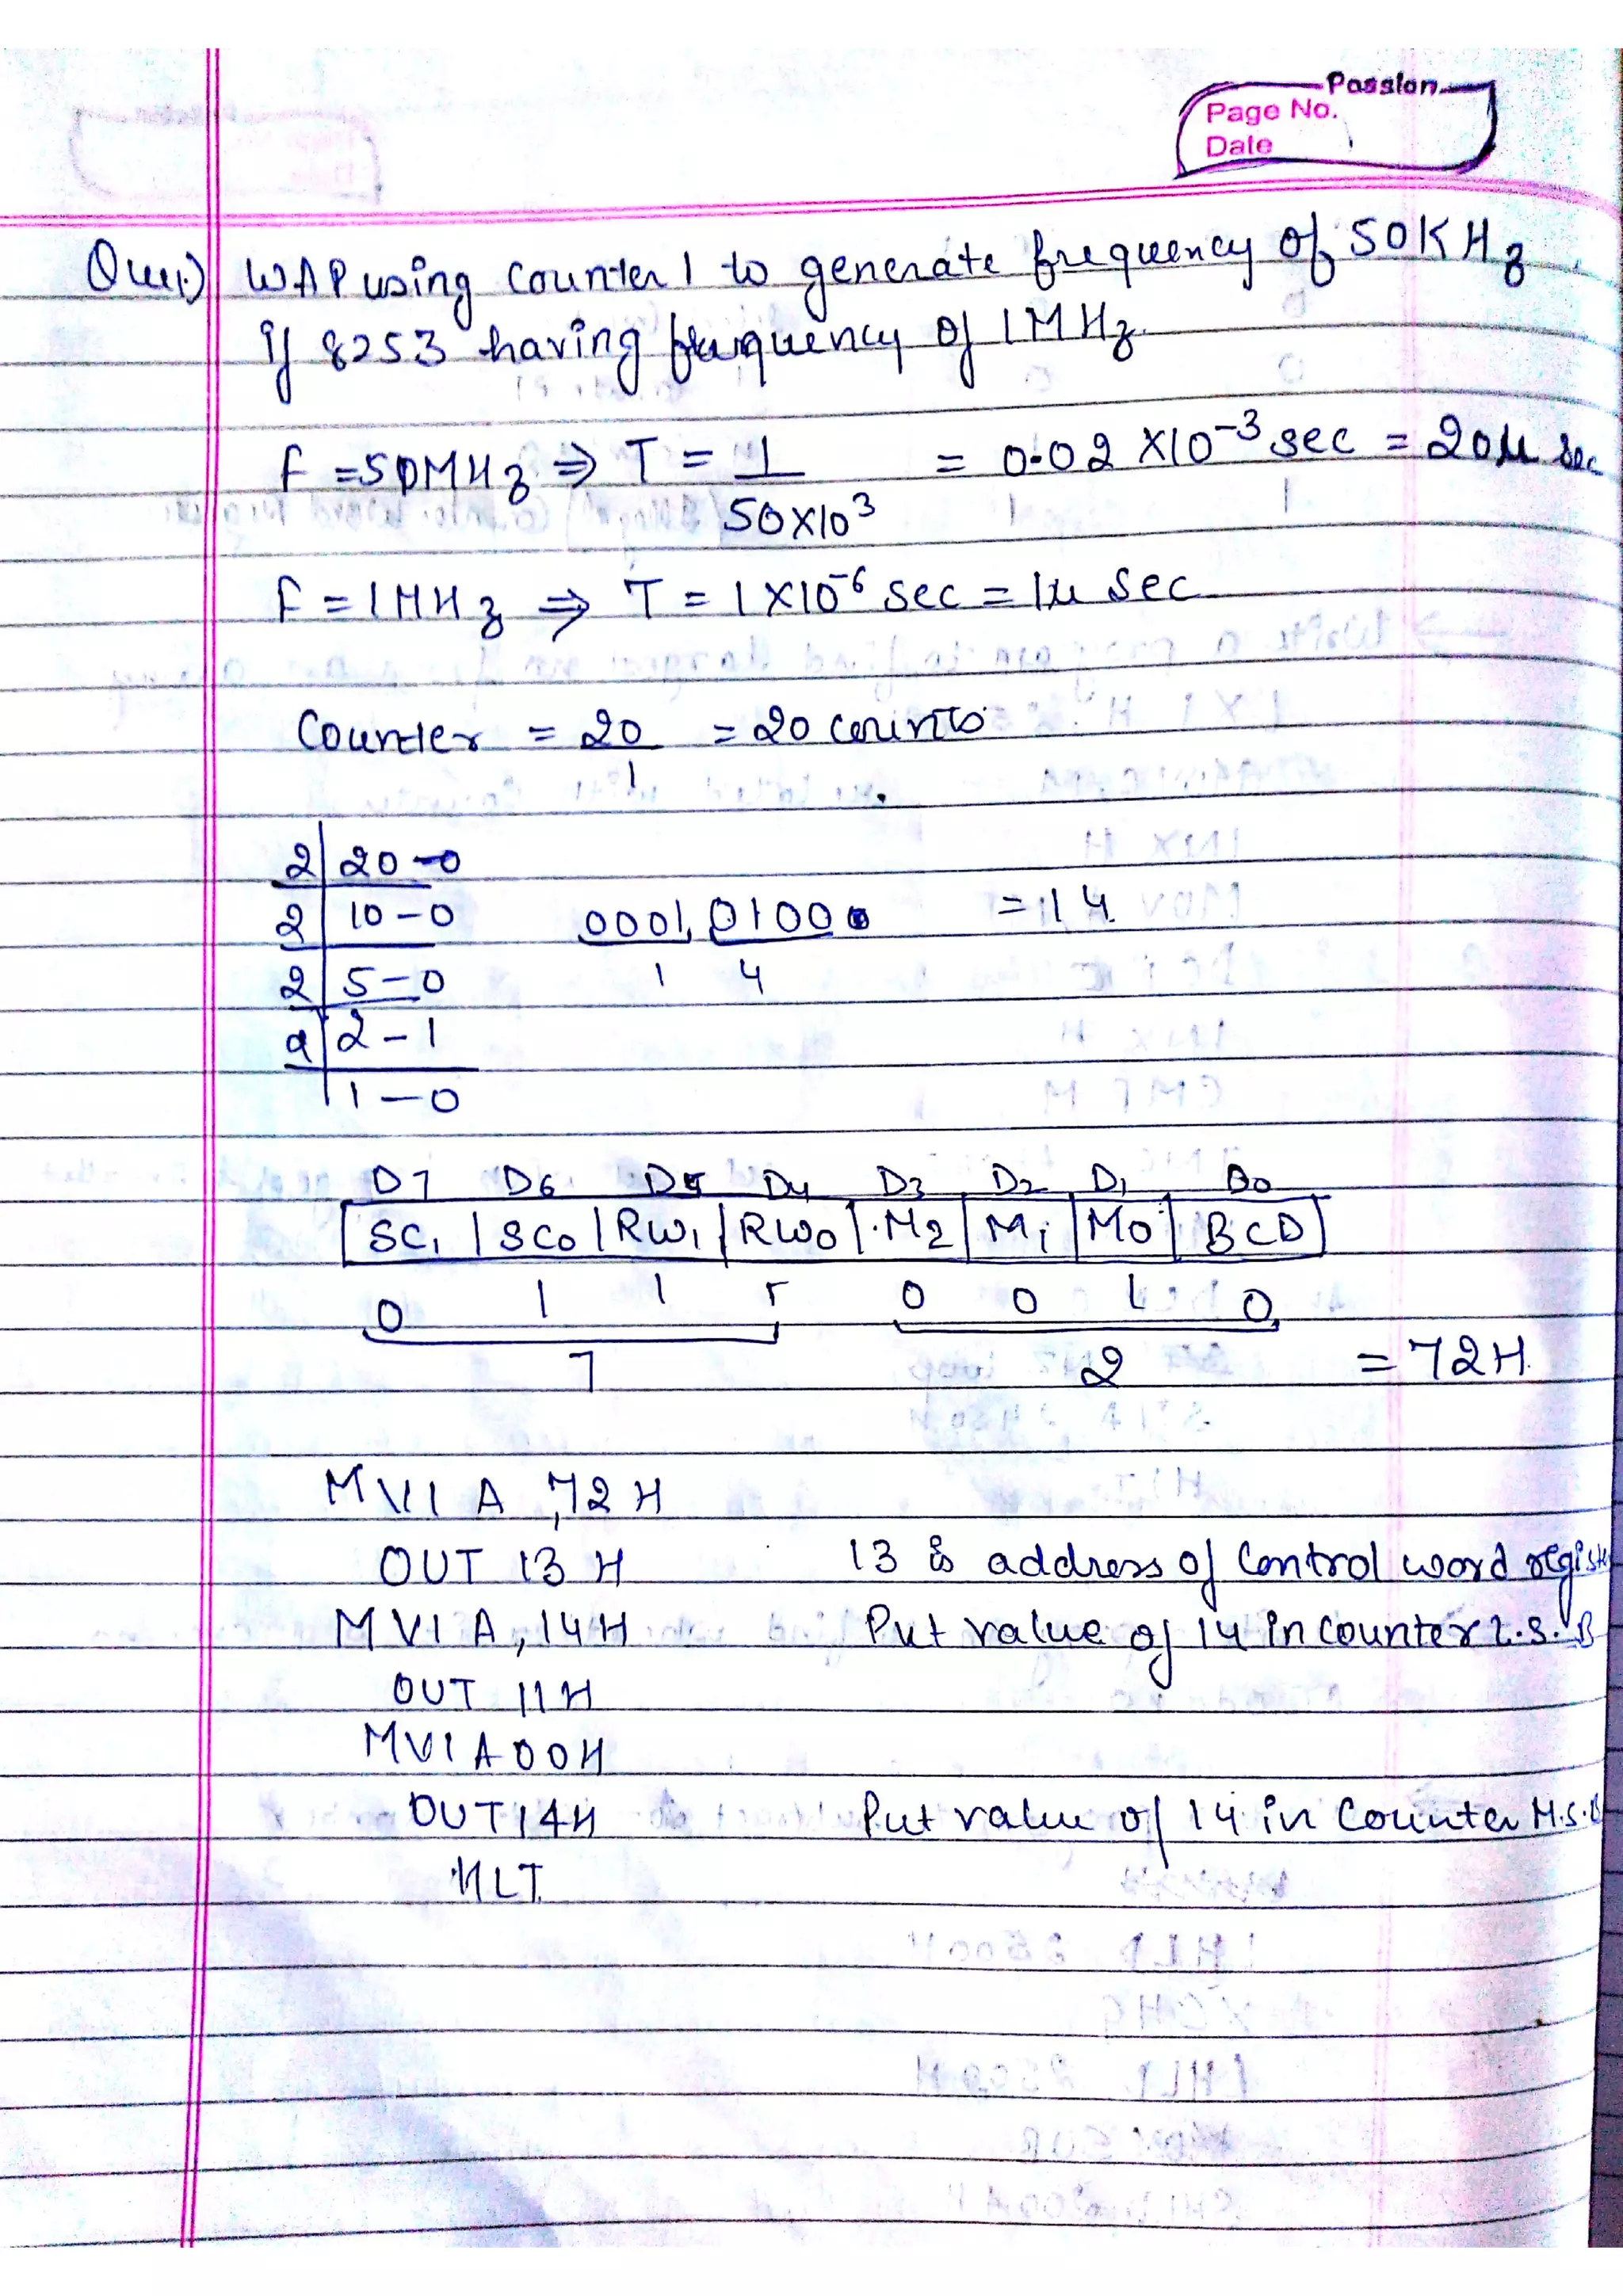 Passion
Page No.
Date
Que1.) WAP using Counter 1 to generate frequency of 50KHz
if 8253 having frequency of 1MHz.
F = 50MHz ⇒ T = 1 / 50×10³ = 0.02 ×10⁻³ sec = 20μ sec
F = 1MHz ⇒ T = 1×10⁻⁶ sec = 1μ sec
Counter = 20 / 1 = 20 counts
2 | 20 - 0
2 | 10 - 0 0001 0100 = 14
2 | 5 - 0 1 4
2 | 2 - 1
1 - 0
D7 D6 D5 D4 D3 D2 D1 D0
SC1 | SC0 | RW1 | RW0 | M2 | M1 | M0 | BCD
0 1 1 1 0 0 1 0
7 2 = 72H
MVI A, 72H
OUT 13H 13 is address of Control word regist
MVI A, 14H Put value of 14 in counter L.S.B
OUT 11H
MVI A 00H
OUT 14H Put value of 14 in Counter M.S.B
HLT